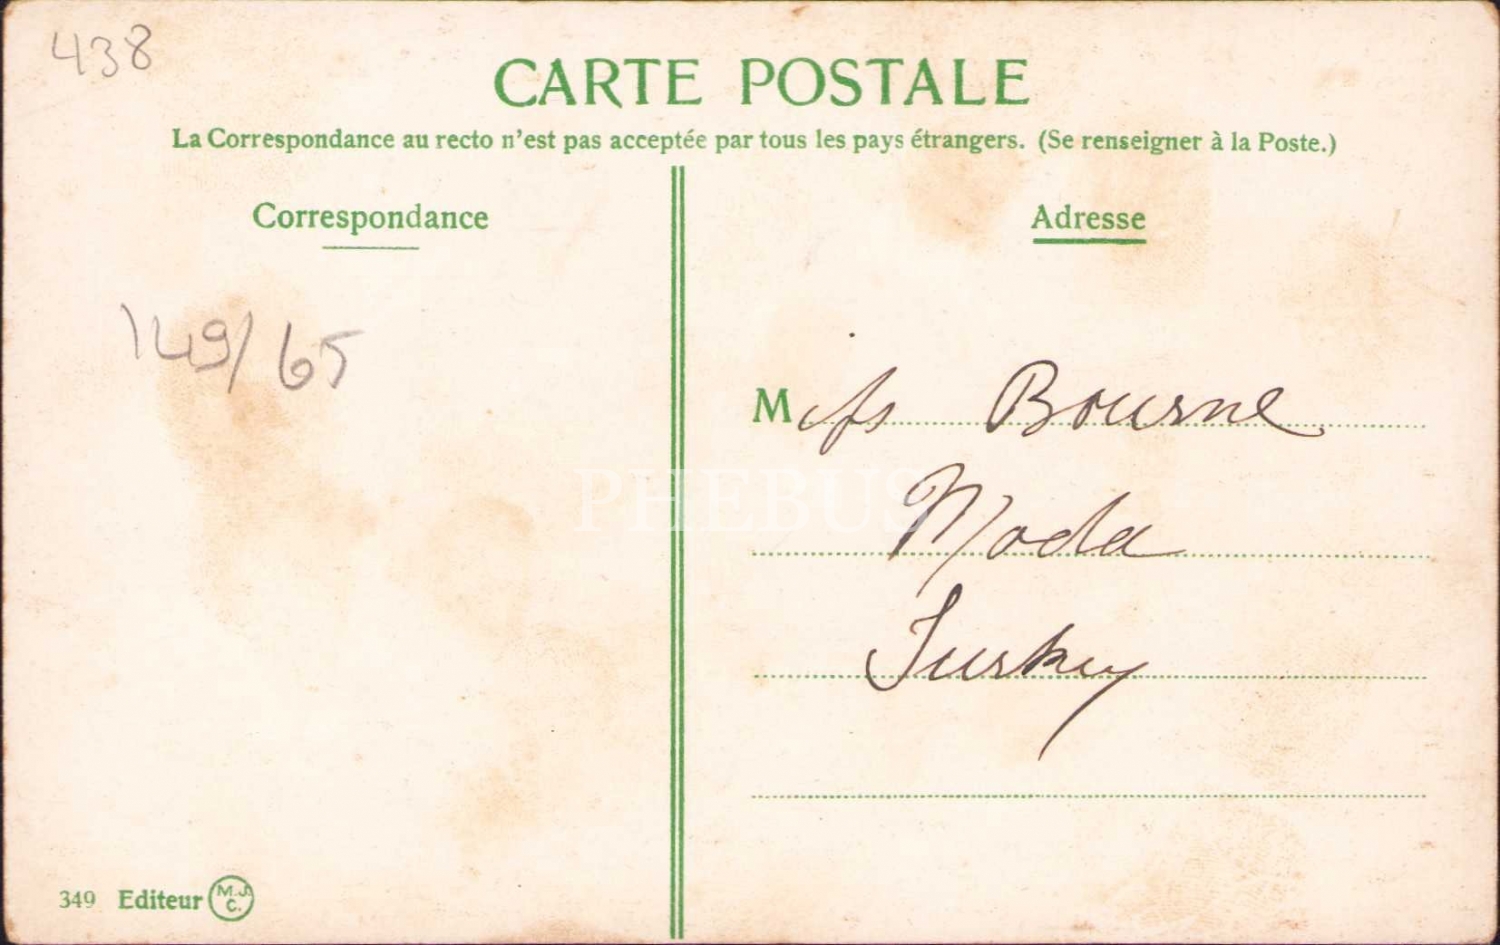 438
CARTE POSTALE
La Correspondance au recto n'est pas acceptée par tous les pays étrangers. (Se renseigner à la Poste.)
Correspondance
149/65
Adresse
Miss Bourne
Moda
Turkey
PHEBUS
349 Editeur M.J.C.